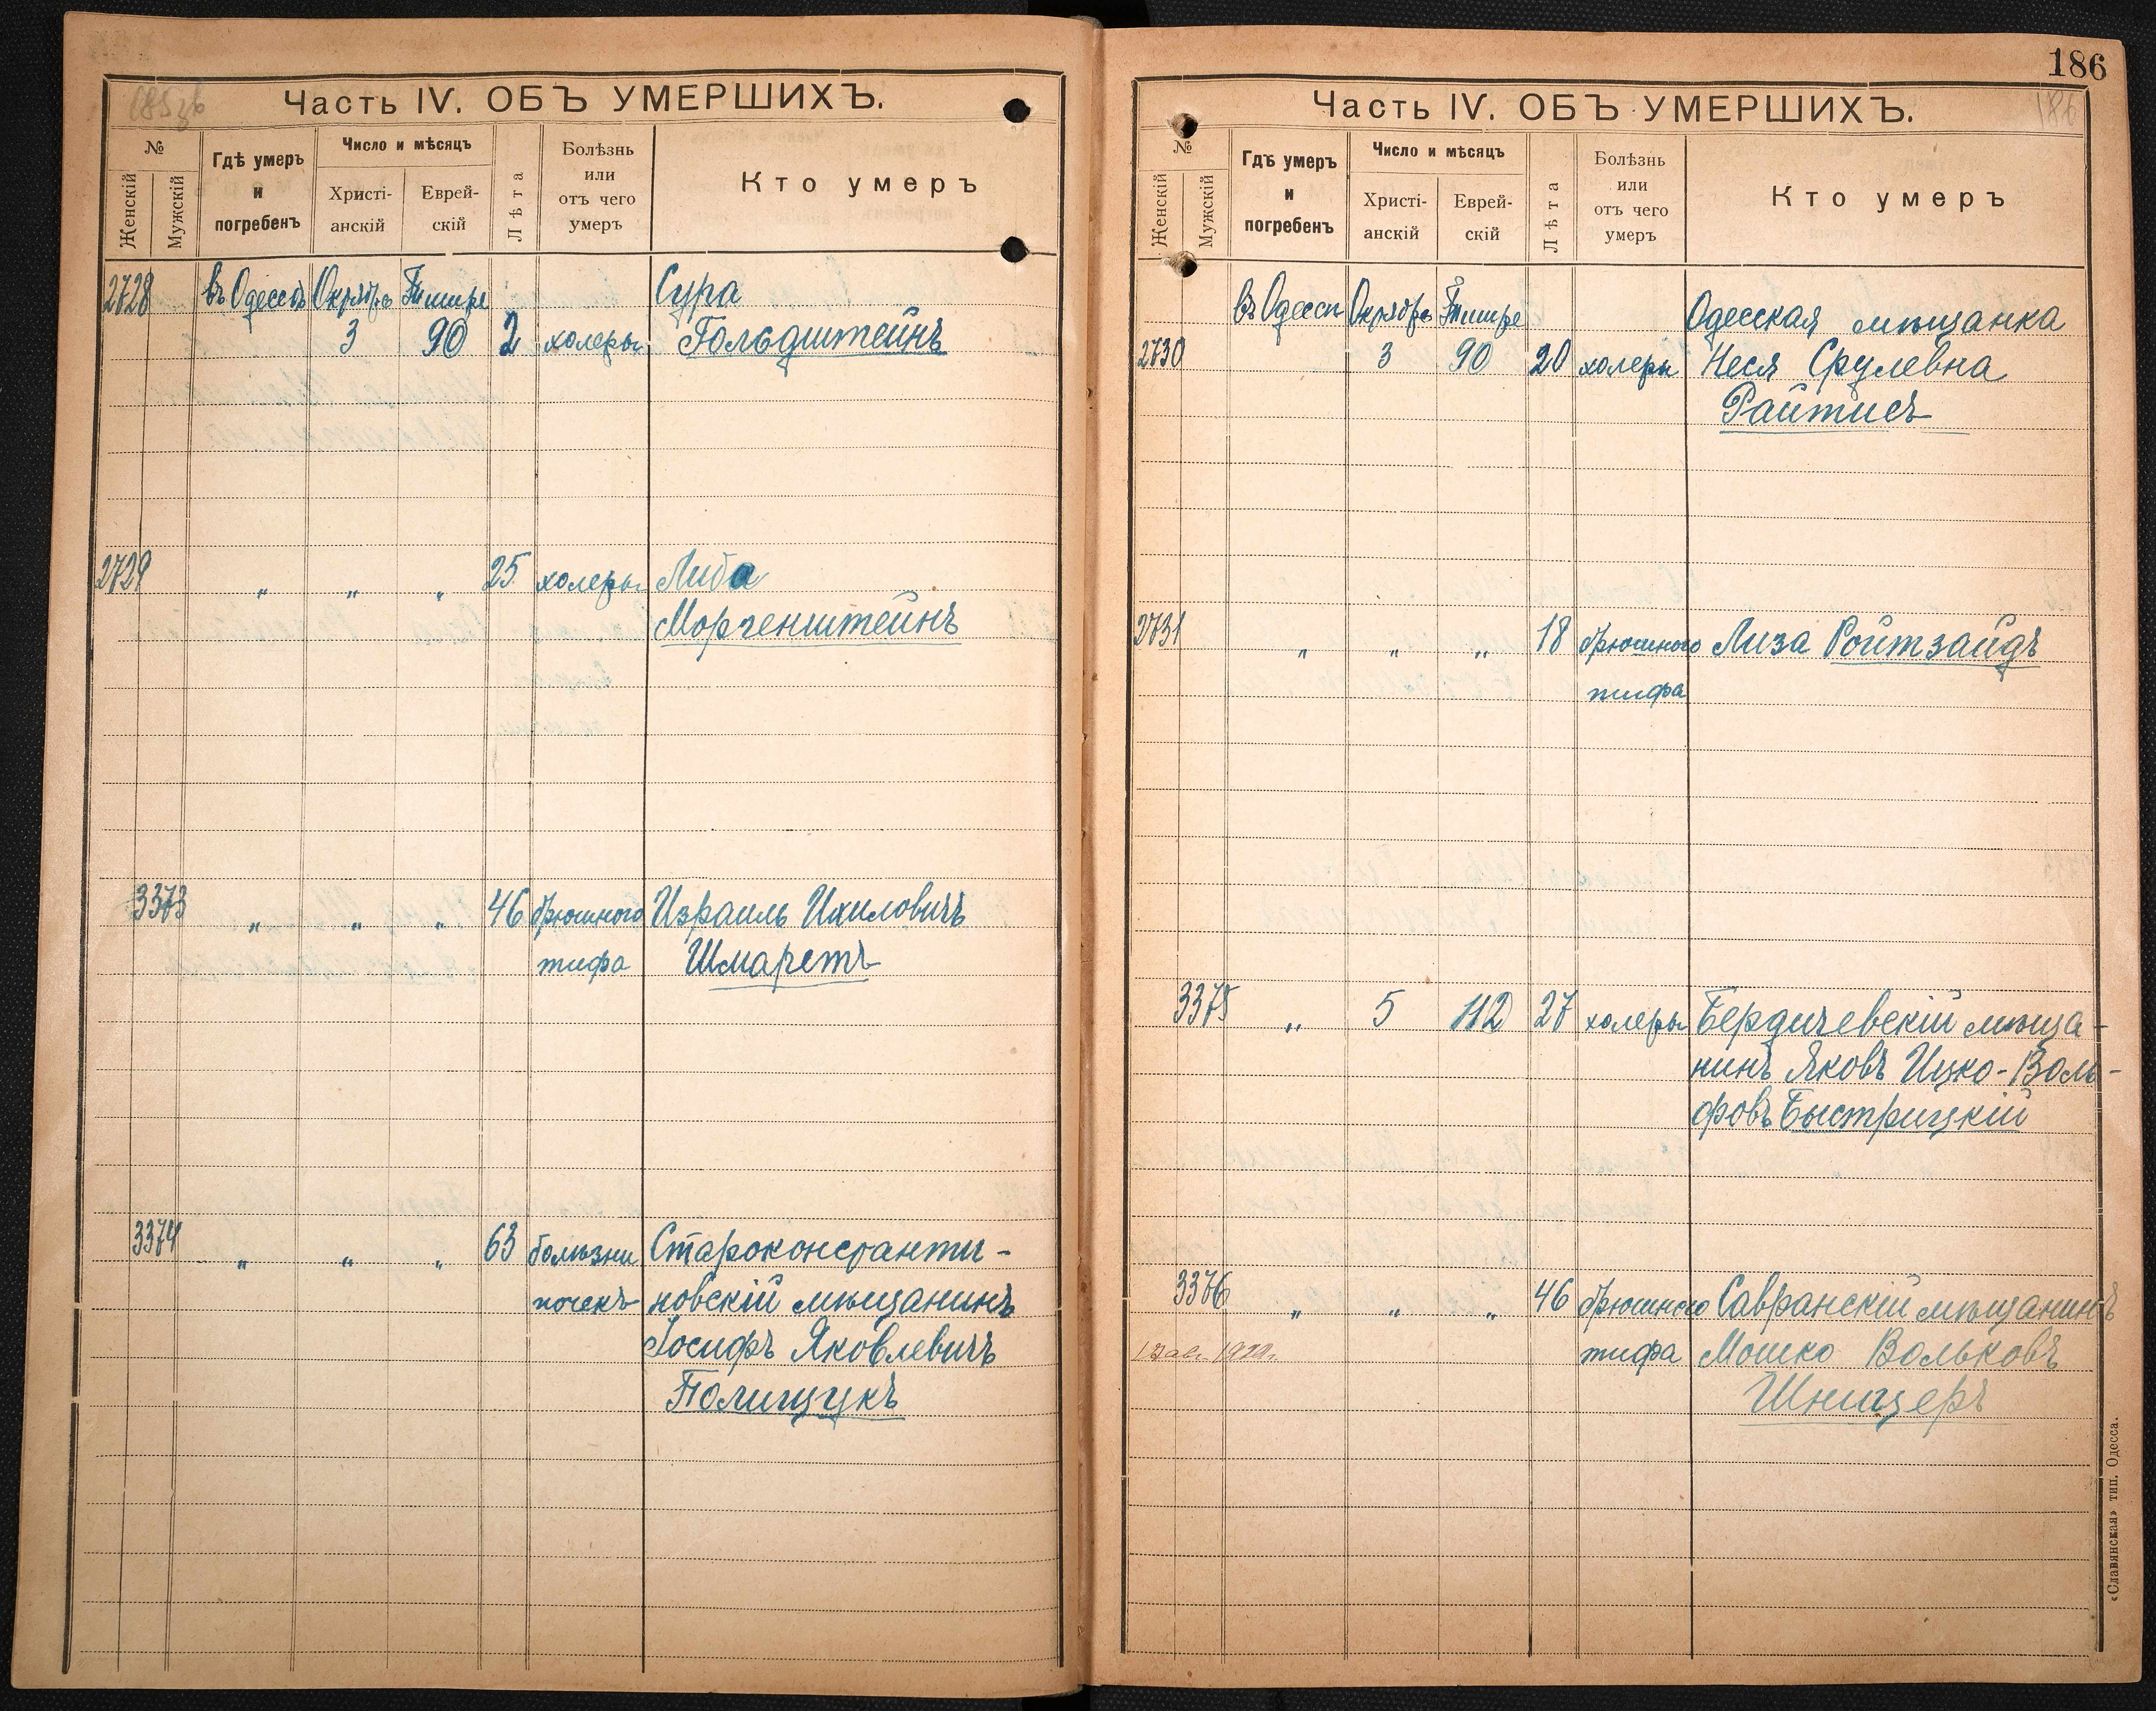 Часть IV. ОБЪ УМЕРШИХЪ.
№
Женскій
Мужскій
Гдѣ умеръ
и
погребенъ
Число и мѣсяцъ
Христі-
анскій
Еврей-
скій
Лѣта
Болѣзнь
или
отъ чего
умеръ
Кто умеръ
2728 въ Одессѣ Октябрь Тишре Сура
3 90 2 холеры Гольдштейнъ
2729 „ „ „ 25 холеры Либа
Моргенштейнъ
3373 „ „ „ 46 брюшного Израиль Ихиловичъ
тифа Шмаретъ
3374 „ „ „ 63 болѣзни Староконстанти-
почекъ новскій мѣщанинъ
Іосифъ Яковлевичъ
Полищукъ
186
186
Часть IV. ОБЪ УМЕРШИХЪ.
№
Женскій
Мужскій
Гдѣ умеръ
и
погребенъ
Число и мѣсяцъ
Христі-
анскій
Еврей-
скій
Лѣта
Болѣзнь
или
отъ чего
умеръ
Кто умеръ
въ Одессѣ Октябрь Тишре Одесская мѣщанка
2730 3 90 20 холеры Неся Срулевна
Райтисъ
2731 „ „ „ 18 брюшного Лиза Ройтзайдъ
тифа
3375 „ 5 112 27 холеры Бердичевскій мѣща-
нинъ Яковъ Ицко-Воль-
фовъ Быстрицкій
3376 „ „ „ 46 брюшного Савранскій мѣщанинъ
тифа Мошко Вольковъ
Шницеръ
«Славянская» тип. Одесса.